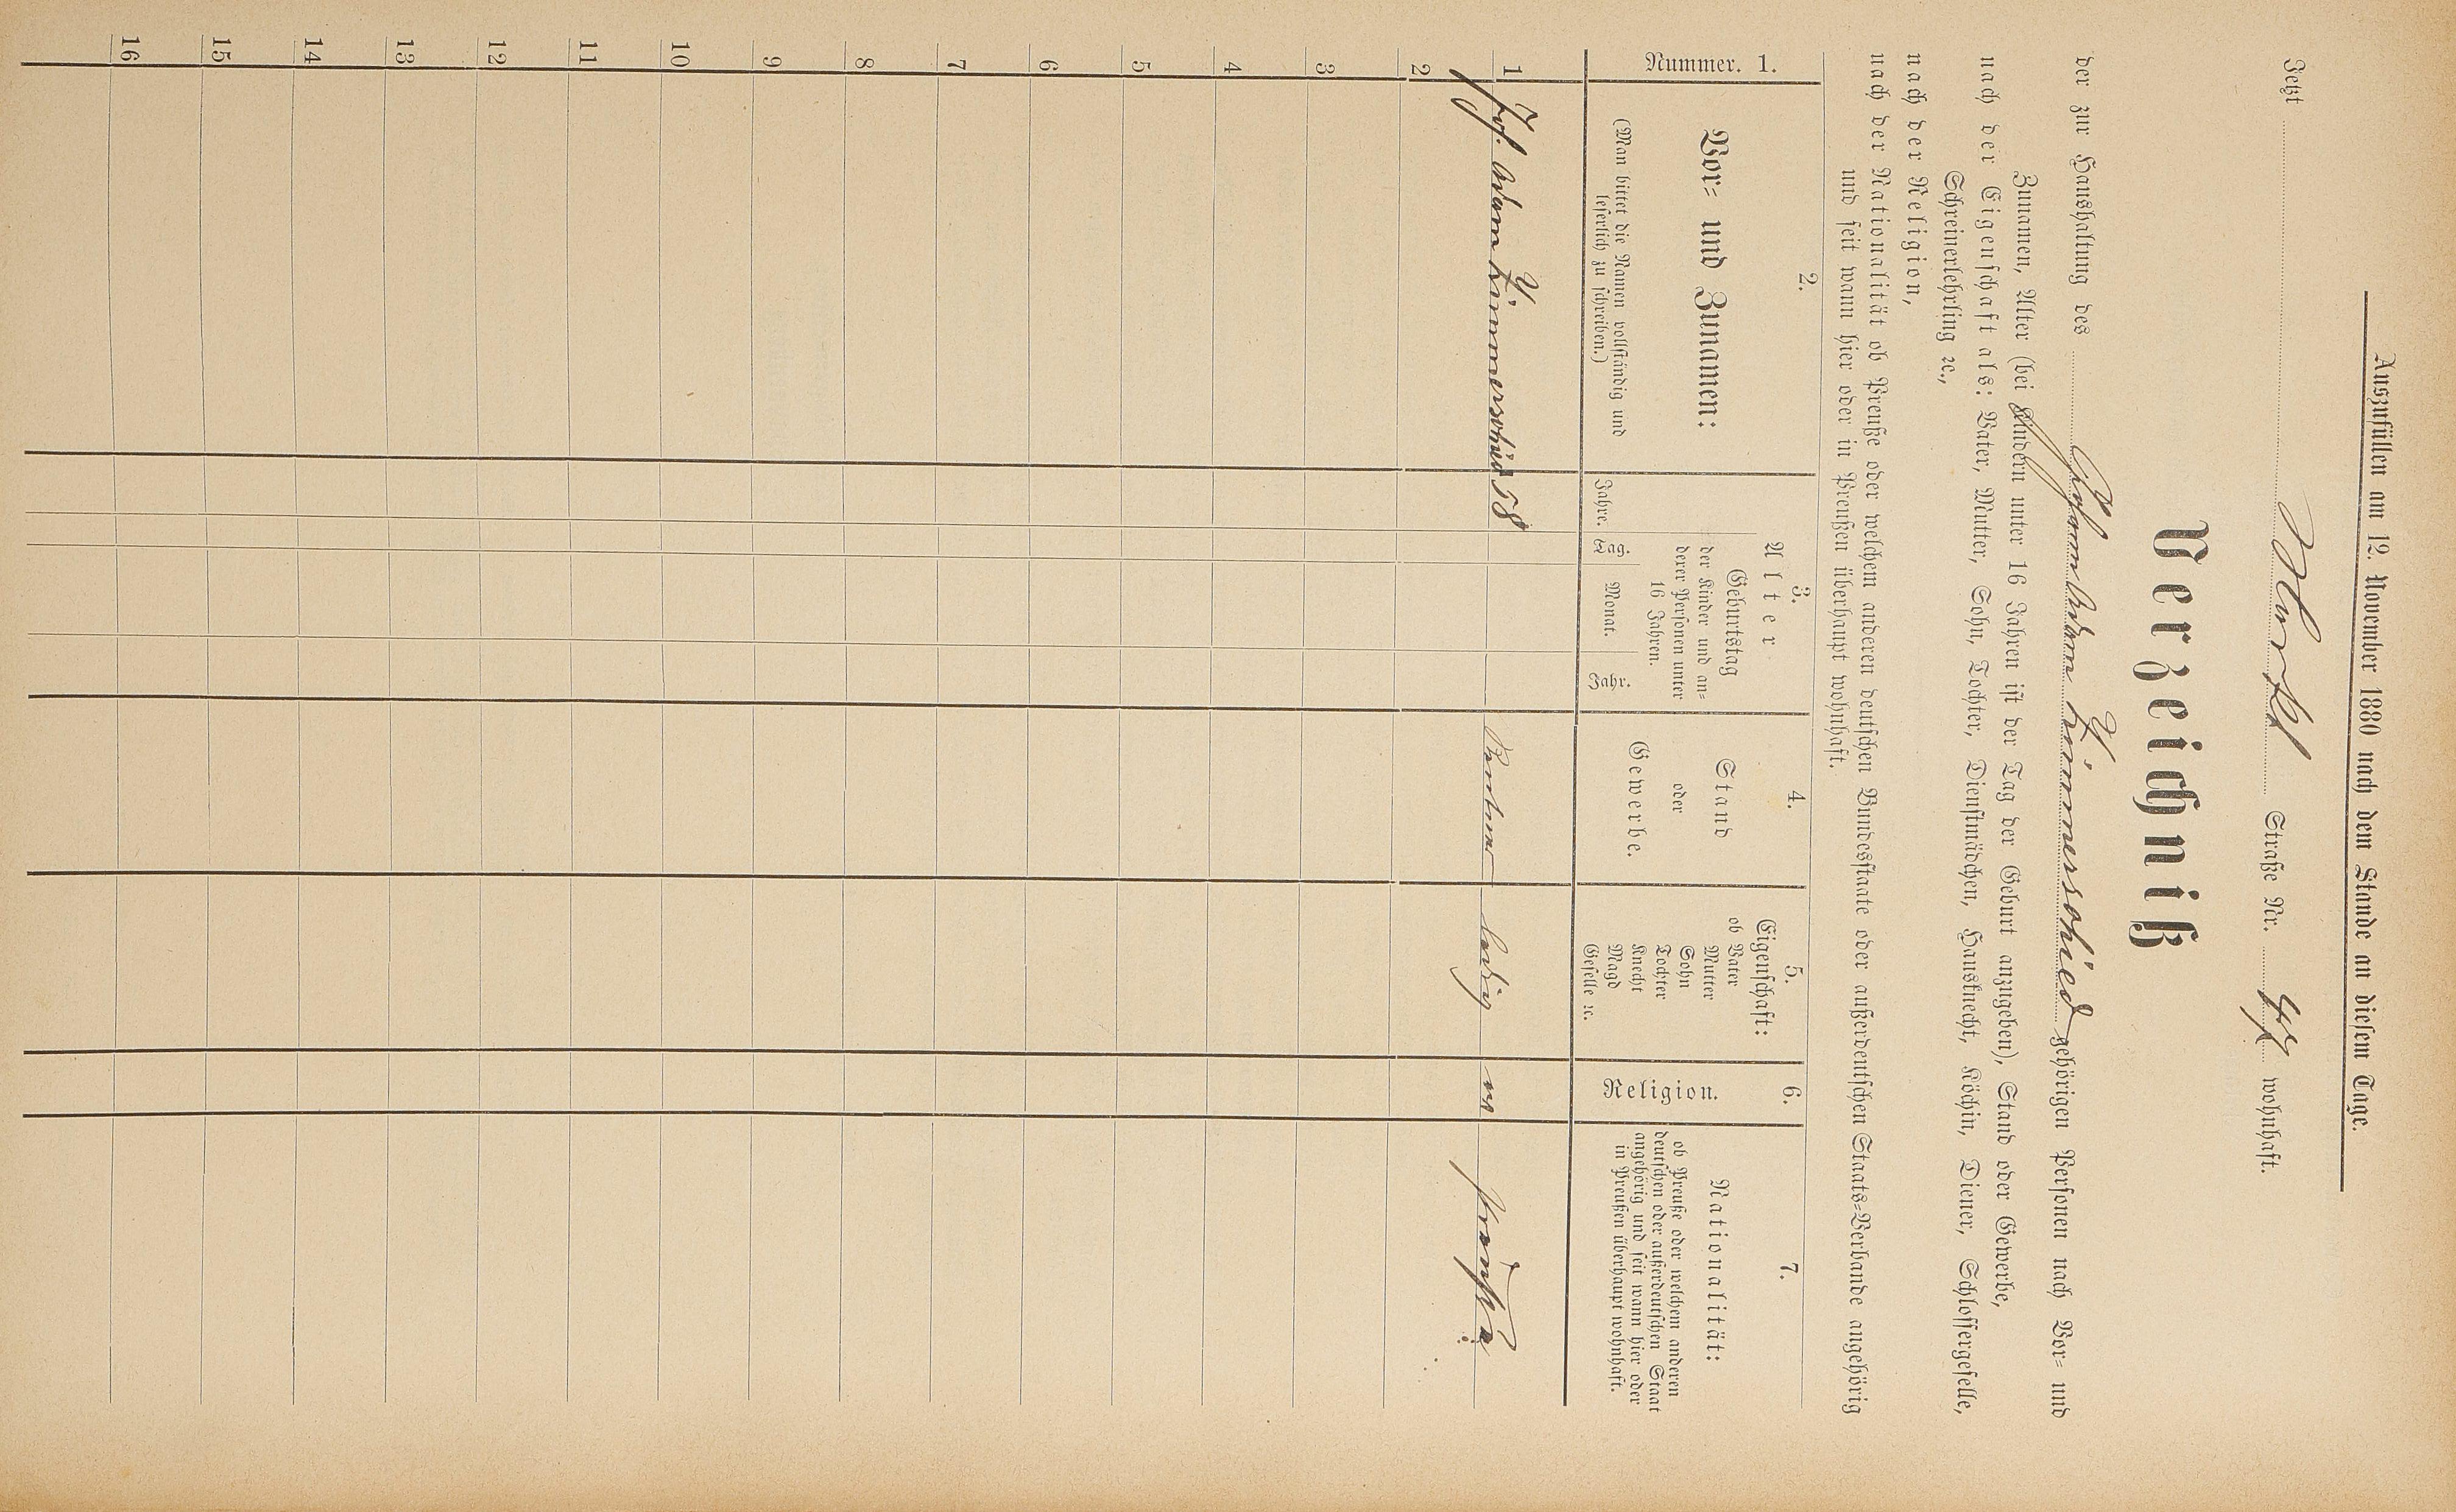 Auszufüllen am 12. November 1880 nach dem Stande an diesem Tage.
Jetzt Markt Straße Nr. wohnhaft.
Verzeichniß
der zur Haushaltung des Johann Adam Zimmerschied gehörigen Personen nach Vor= und
Zunamen, Alter (bei Kindern unter 16 Jahren ist der Tag der Geburt anzugeben), Stand oder Gewerbe,
nach der Eigenschaft als: Vater, Mutter, Sohn, Tochter, Dienstmädchen, Hausknecht, Köchin, Diener, Schlossergeselle,
Schreinerlehrling ꝛc.,
nach der Religion,
nach der Nationalität ob Preuße oder welchem anderen deutschen Bundesstaate oder außerdeutschen Staats=Verbande angehörig
und seit wann hier oder in Preußen überhaupt wohnhaft.
Nummer. 1.
2.
Vor= und Zunamen:
(Man bittet die Namen vollständig und
leserlich zu schreiben.)
3.
Alter
Jahre.
Geburtstag
der Kinder und an=
derer Personen unter
16 Jahren.
Tag. Monat. Jahr.
4.
Stand
oder
Gewerbe.
5.
Eigenschaft:
ob Vater
Mutter
Sohn
Tochter
Knecht
Magd
Geselle ꝛc.
6.
Religion.
7.
Nationalität:
ob Preuße oder welchem anderen
deutschen oder außerdeutschen Staat
angehörig und seit wann hier oder
in Preußen überhaupt wohnhaft.
1 Joh. Adam Zimmerschied 58 Rentner ledig
2
3
4
5
6
7
8
9
10
11
12
13
14
15
16